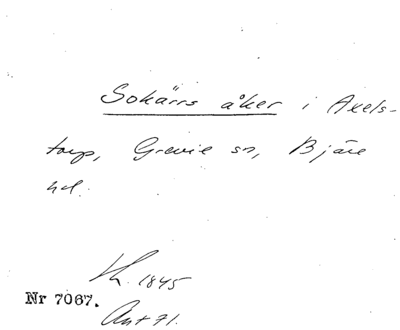 Sokärrs åker i Axels-
torp, Grevie sn, Bjäre
hd.
1845
Nr 7067.
Ant 71.